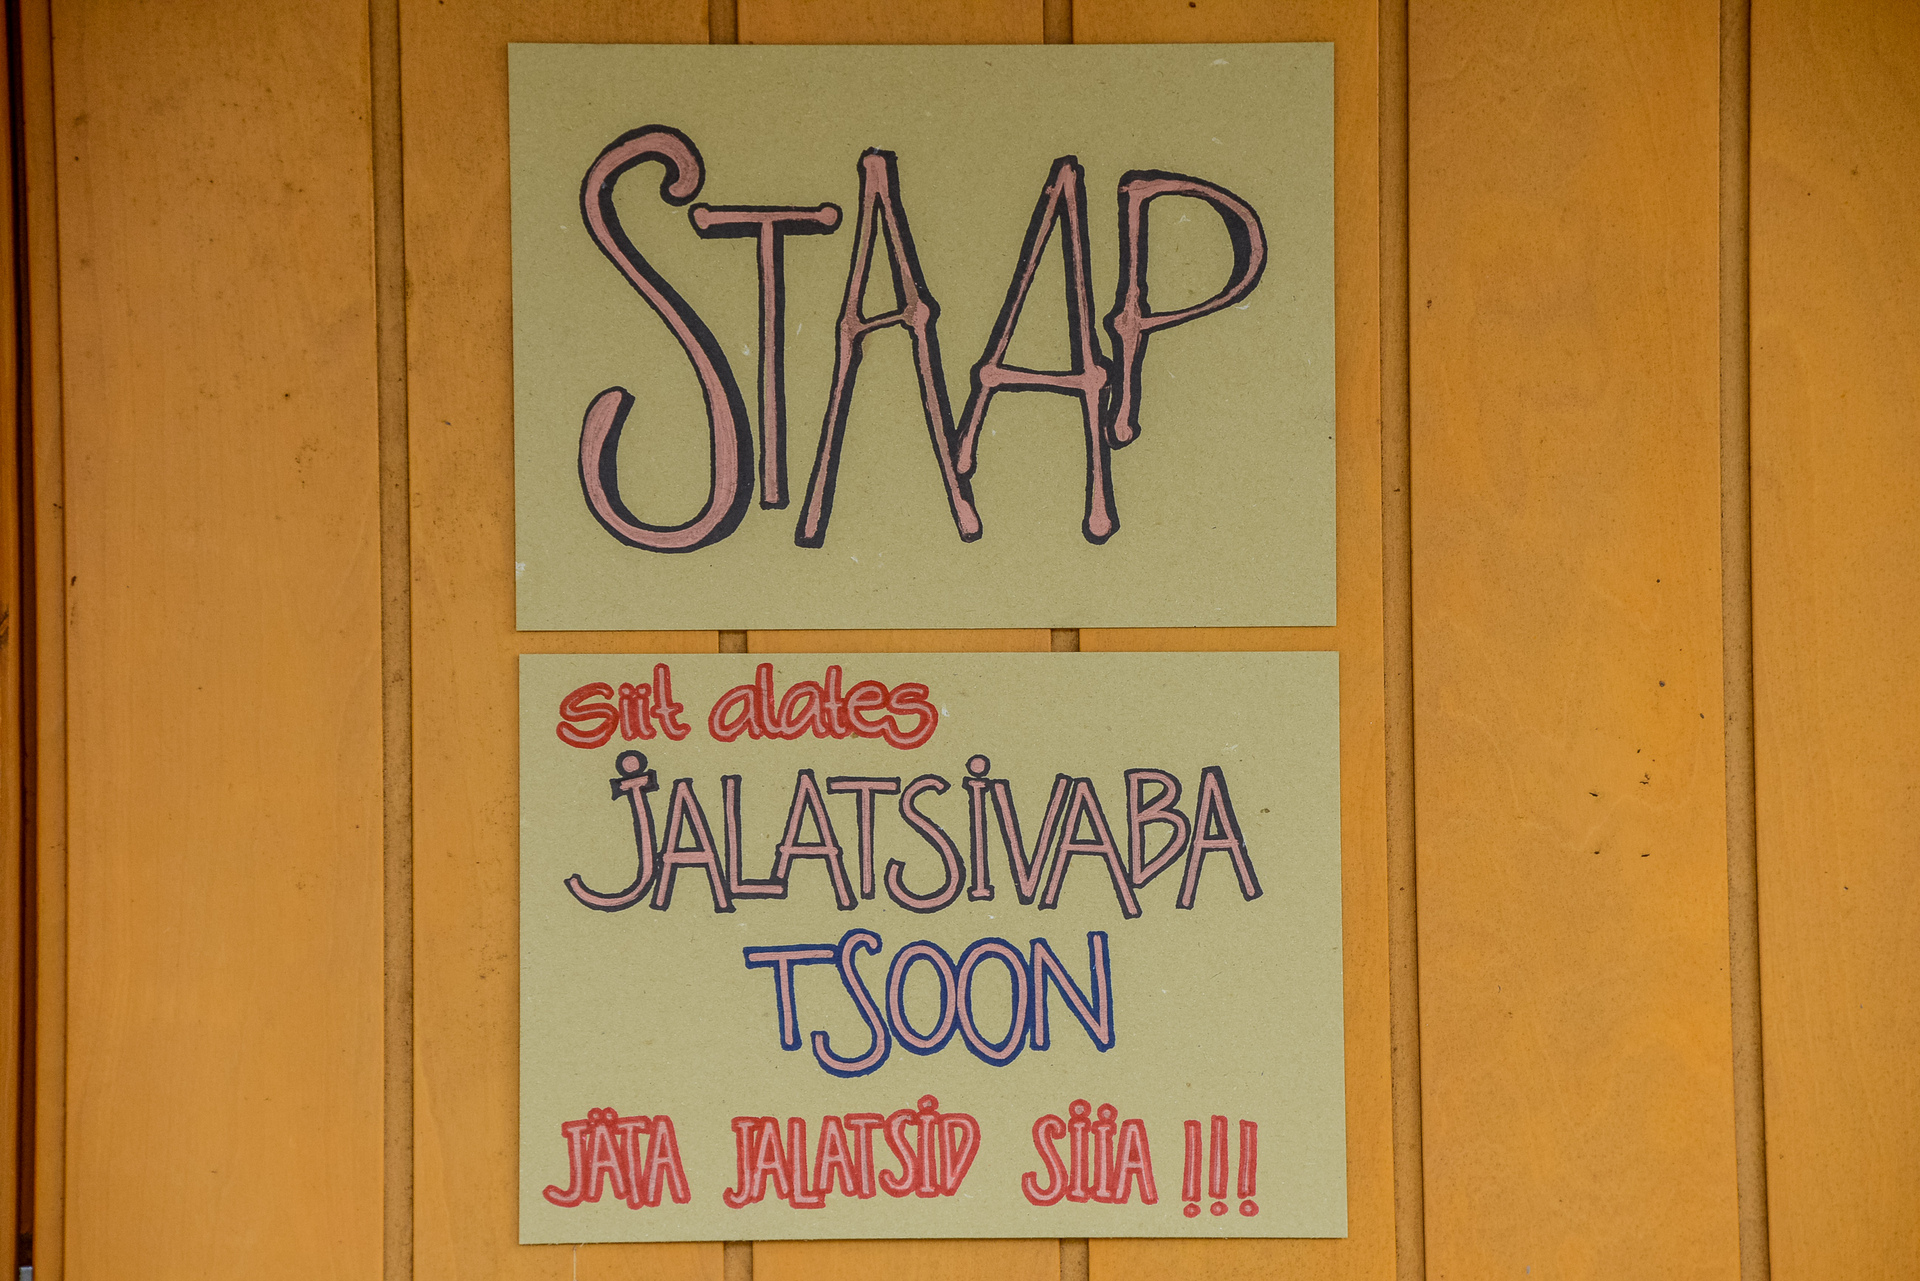 STAAP
siit alates
JALATSIVABA
TSOON
JÄTA JALATSID SIIA !!!